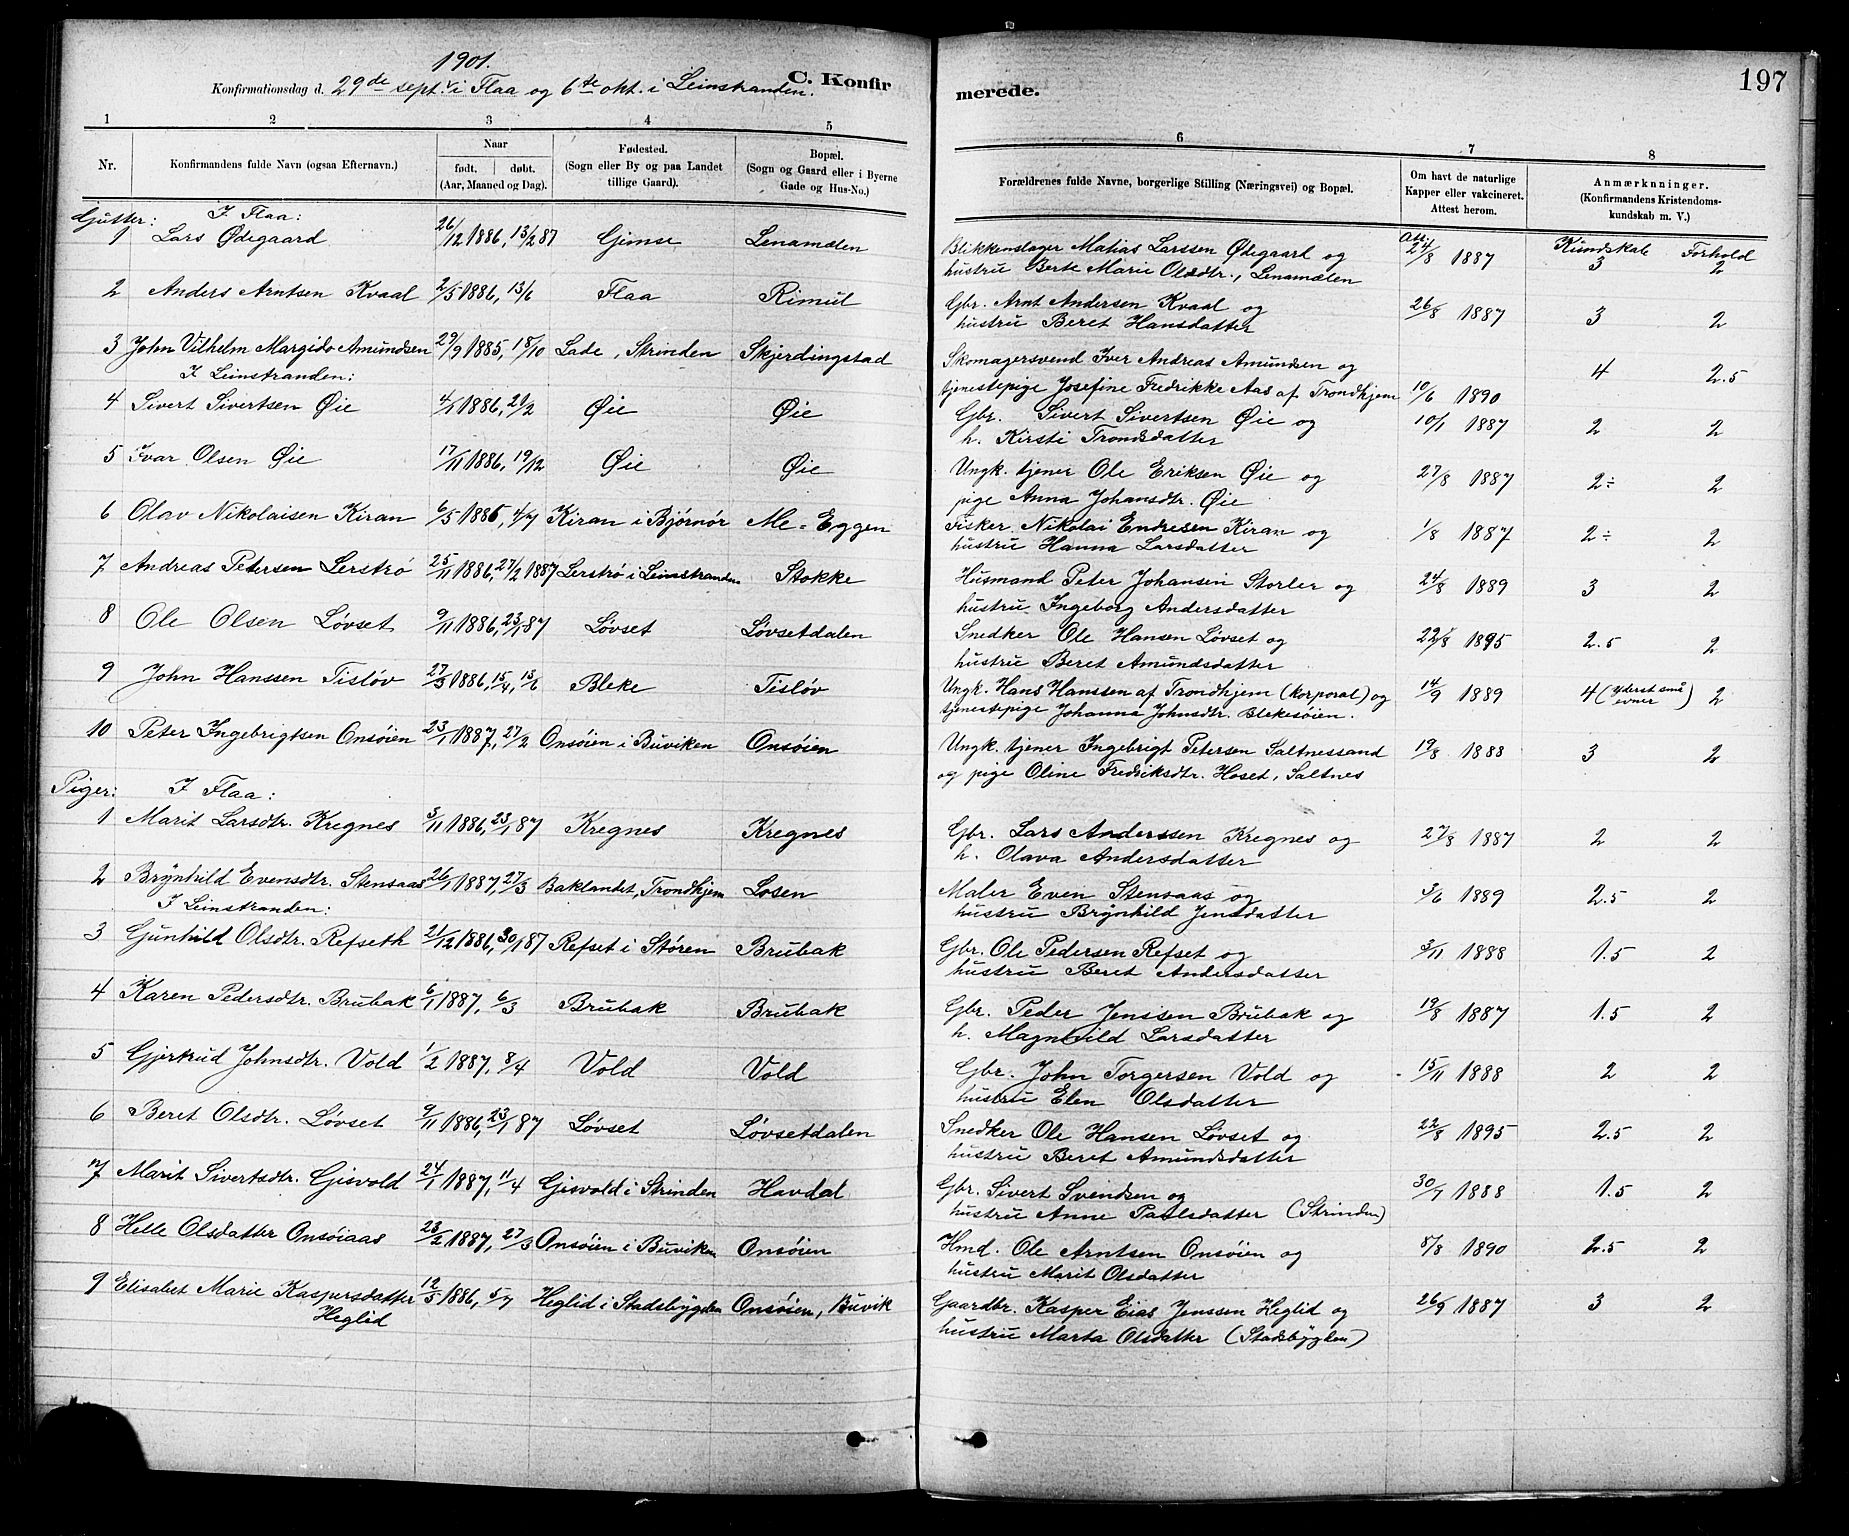 1901.
Konfirmationsdag d. 29de sept. i Flaa og 6te okt. i Leinstranden.
C. Konfirmerede.
197
1 2 3 4 5 6 7 8
Nr. Konfirmandens fulde Navn (ogsaa Efternavn.) Naar født. døbt. (Aar, Maaned og Dag). Fødested. (Sogn eller By og paa Landet tillige Gaard). Bopæl. (Sogn og Gaard eller i Byerne Gade og Hus-No.) Forældrenes fulde Navne, borgerlige Stilling (Næringsvei) og Bopæl. Om havt de naturlige Kapper eller vakcineret. Attest herom. Anmærkninger. (Konfirmandens Kristendomskundskab m. V.)
Gutter: I Flaa:
Att. Kundskab Forhold
1 Lars Ødegaard 26/12 1886, 13/2 87 Gimse Lenamælen Blikkenslager Matias Larssen Ødegaard og 24/8 1887 3 2
hustru Berte Marie Olsdtr., Lenamælen
2 Anders Arntsen Kvaal 2/5 1886, 13/6 Flaa Rimul Gbr. Arnt Andersen Kvaal og 26/8 1887 3 2
hustru Beret Hansdatter
3 John Vilhelm Margido Amundsen 29/9 1885, 18/10 Lade, Strinden Skjerdingstad Skomagersvend Iver Andreas Amundsen og 4 2.5
tjenestepige Josefine Fredrikke Aas af Trondhjem 10/6 1890
I Leinstranden:
4 Sivert Sivertsen Øie 4/1 1886, 21/2 Øie Øie Gbr. Sivert Sivertsen Øie og 10/1 1887 2 2
h. Kirsti Trondsdatter
5 Ivar Olsen Øie 17/11 1886, 19/12 Øie Øie Ungk. tjener Ole Eriksen Øie og 27/8 1887 2÷ 2
pige Anna Johansdtr. Øie
6 Olav Nikolaisen Kiran 6/5 1886, 4/7 Kiran i Bjørnør Me-Eggen Fisker Nikolai Endresen Kiran og 1/8 1887 2÷ 2
hustru Hanna Larsdatter
7 Andreas Petersen Lerstrø 25/11 1886, 27/2 1887 Lerstrø i Leinstranden Stokke Husmand Peter Johansen Storler og 24/8 1889 3 2
hustru Ingeborg Andersdatter
8 Ole Olsen Løvset 9/11 1886, 23/1 87 Løvset Løvsetdalen Snedker Ole Hansen Løvset og 22/8 1895 2.5 2
hustru Beret Amundsdatter
9 John Hanssen Tisløv 27/3 1886, 15/4, 13/6 Bleke Tisløv Ungk. Hans Hanssen af Trondhjem (korporal) og 14/9 1889 4 (yderst små evner) 2
tjenestepige Johanna Johnsdtr. Blekesøien.
10 Peter Ingebrigtsen Onsøien 23/1 1887, 27/2 Onsøien i Buviken Onsøien Ungk. tjener Ingebrigt Petersen Saltnessand 19/8 1888 3 2
og pige Oline Fredriksdtr. Hoset, Saltnes
Piger: I Flaa:
1 Marit Larsdtr. Kregnes 3/11 1886, 23/1 87 Kregnes Kregnes Gbr. Lars Anderssen Kregnes og 27/8 1887 2 2
h. Olava Andersdatter
2 Brynhild Evensdtr. Stensaas 26/1 1887, 27/3 Baklandet, Trondhjem Losen Maler Even Stensaas og 3/6 1889 2.5 2
hustru Brynhild Jensdatter
I Leinstranden:
3 Gunhild Olsdtr. Refseth 21/12 1886, 30/1 87 Refset i Støren Brubak Gbr. Ole Pedersen Refset og 3/11 1888 1.5 2
hustru Beret Andersdatter
4 Karen Pedersdtr. Brubak 6/1 1887, 6/3 Brubak Brubak Gbr. Peder Jenssen Brubak og 19/8 1887 1.5 2
h. Magnhild Larsdatter
5 Gjertrud Johnsdtr. Vold 1/2 1887, 8/4 Vold Vold Gbr. John Torgersen Vold og 15/11 1888 2 2
hustru Elen Olsdatter
6 Beret Olsdtr. Løvset 9/11 1886, 23/1 87 Løvset Løvsetdalen Snedker Ole Hansen Løvset og 22/8 1895 2.5 2
hustru Beret Amundsdatter
7 Marit Sivertsdtr. Gisvold 24/1 1887, 11/4 Gisvold i Strinden Havdal Gbr. Sivert Svendsen og 30/7 1888 1.5 2
hustru Anne Paulsdatter (Strinden)
8 Helle Olsdatter Onsøiaas 23/2 1887, 27/3 Onsøien i Buviken Onsøien Hmd. Ole Arntsen Onsøien og 8/8 1890 2.5 2
hustru Marit Olsdatter
9 Elisabet Marie Kaspersdatter 12/5 1886, 5/7 Heglid i Stadsbygden Onsøien, Buvik Gaardbr. Kasper Eias Jenssen Heglid og 26/9 1887 3 2
Heglid hustru Marta Olsdatter (Stadsbygden)